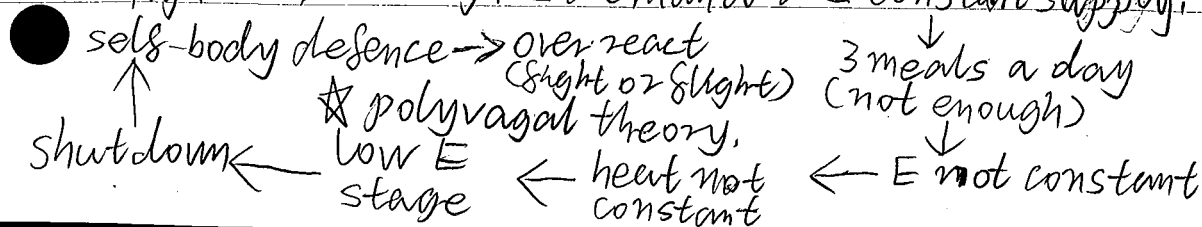 constant supply.
self-body defence → over react
(fight or flight)
↓
3 meals a day
(not enough)
☆ polyvagal theory.
↑
↓
shutdown ← low E
stage
← heat not
constant
← E not constant